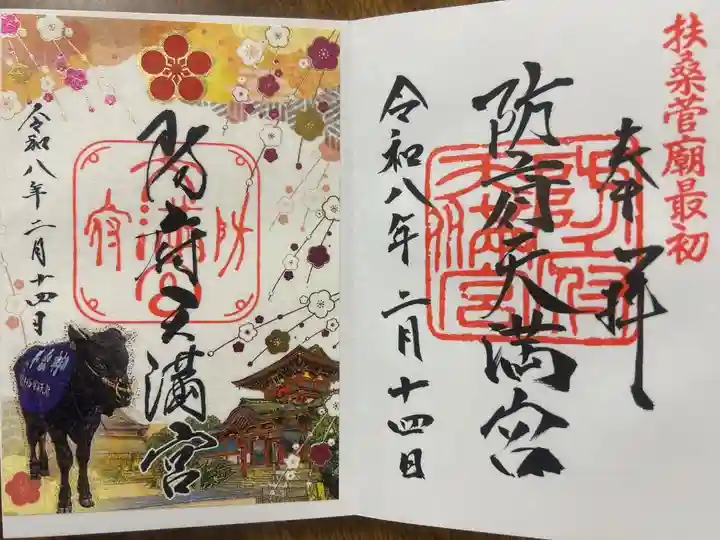 扶桑菅廟最初
奉拝
防府天満宮
令和八年二月十四日
防府天満宮
令和八年二月十四日